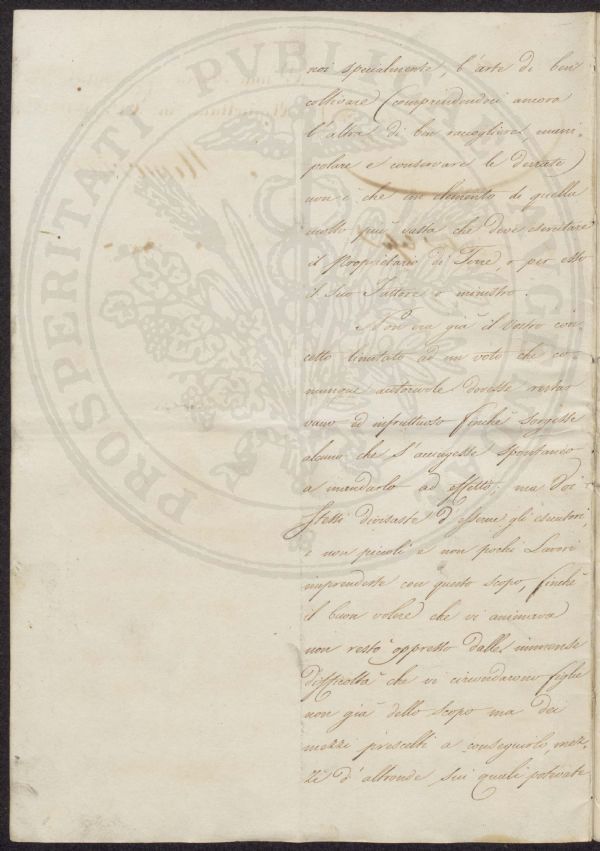 PROSPERITATI PVBLICAE AVGENDAE
noi specialmente, l'arte di ben
coltivare (comprendendovi ancora
l'altra di ben raccogliere, mani-
polare e conservare le derrate)
non è che un elemento di quella
molto più vasta che deve esercitare
il Proprietario di Terre, o per esso
il suo Fattore o ministro.
Non era già il Vostro con
cetto limitato ad un voto che co-
munque autorevole dovesse restar
vano ed infruttuoso finchè sorgesse
alcuno che s'accingesse spontaneo
a mandarlo ad effetto; ma Voi
stessi divisaste d'esserne gli esecutori,
e non piccoli e non pochi Lavori
imprendeste con questo scopo, finchè
il buon volere che vi animava
non restò oppresso dalle immense
difficoltà che vi circondarono figlie
non già dello scopo ma dei
mezzi prescelti a conseguirlo, mez-
zi d'altronde, sui quali potevate